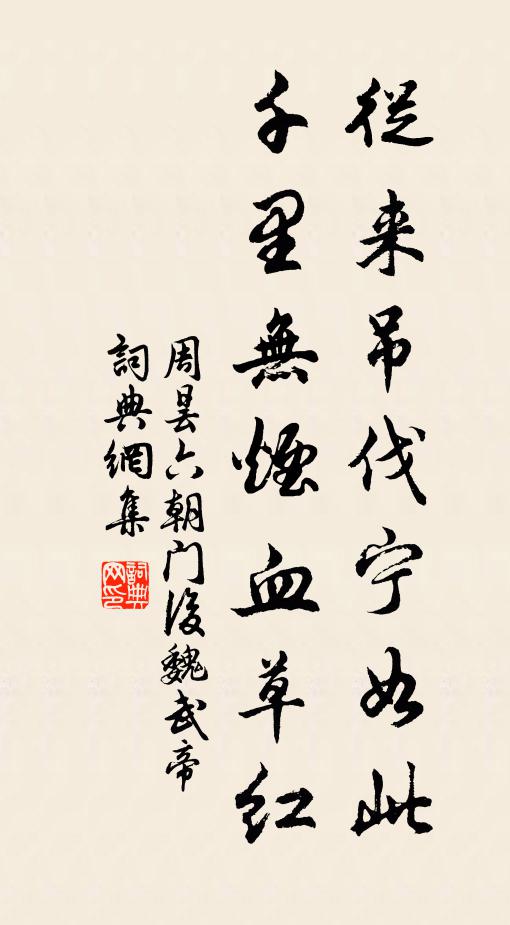 從来吊伐宁如此
千里無煙血草紅
周曇六朝门後魏武帝
詞典網集
詞典网印